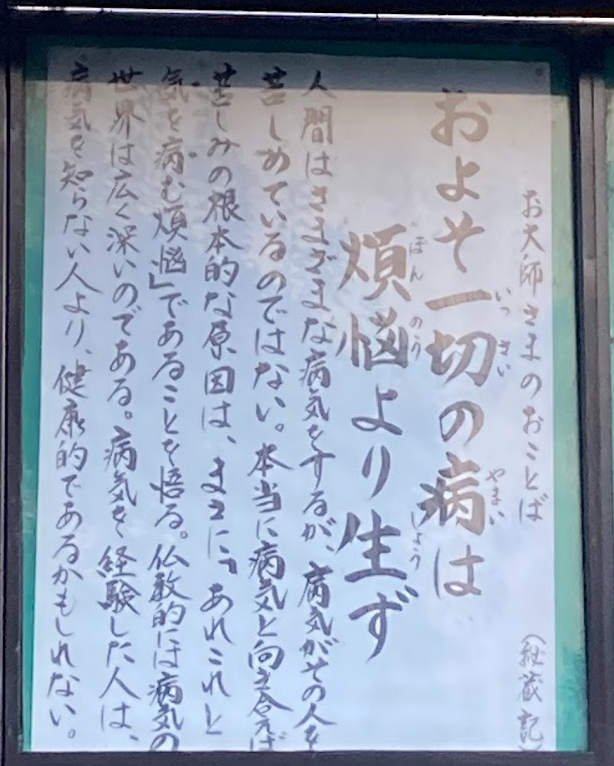 お大師さまのおことば
(秘蔵記)
およそ一切の病は
いっさい
やまい
煩悩より生ず
ぼんのう
しょう
人間はさまざまな病気をするが、病気がその人を
苦しめているのではない。本当に病気と向き合えば
苦しみの根本的な原因は、まさに「あれこれと
気を病む煩悩」であることを悟る。仏教的には病気の
世界は広く深いのである。病気を経験した人は、
病気を知らない人より、健康的であるかもしれない。